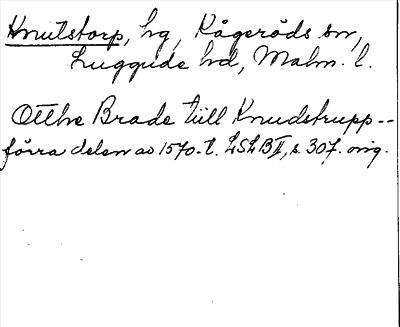 Knutstorp, hg, Kågeröds sn,
Luggude hd, Malm. l.
Otthe Brade tiill Knudstrupp--
förra delen av 1570-t. LSLB II, s. 307. orig.